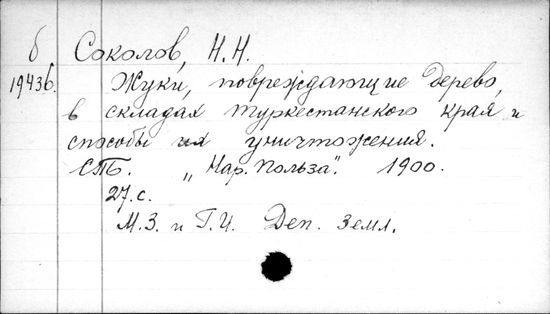 б Соколов, Н. Н.
1943б. Жуки, повреждающие дерево,
в складах Туркестанского края и
способы их уничтожения.
СПБ. „Нар. Польза". 1900.
27. с.
М. З. и Г. И. Деп. Земл.